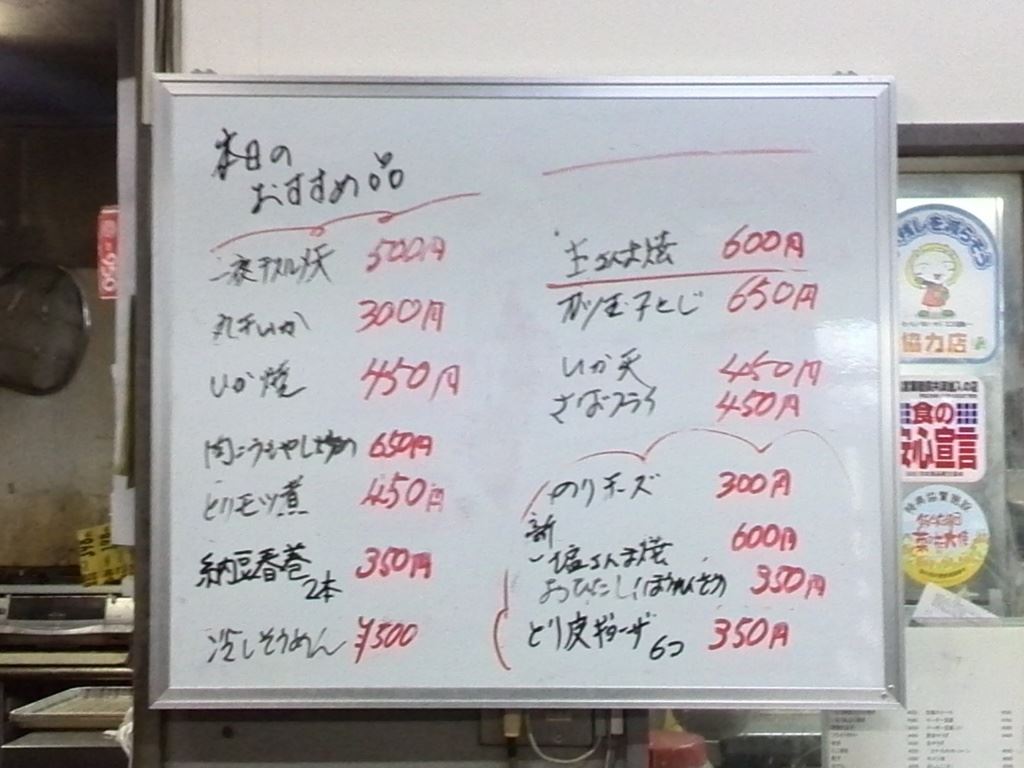 本日の
おすすめ品
500円
丸干いか 300円
いか焼 450円
肉 もやし炒め 650円
とりモツ煮 450円
納豆春巻 2本 350円
冷しそうめん ¥500
さんま焼 600円
玉子とじ 650円
いか天 450円
さばフライ 450円
のりチーズ 300円
新
塩さんま焼 600円
おひたし(ほうれんそう 350円
とり皮ギョーザ 6コ 350円
残しを減らそう
協力店
食の
安心宣言